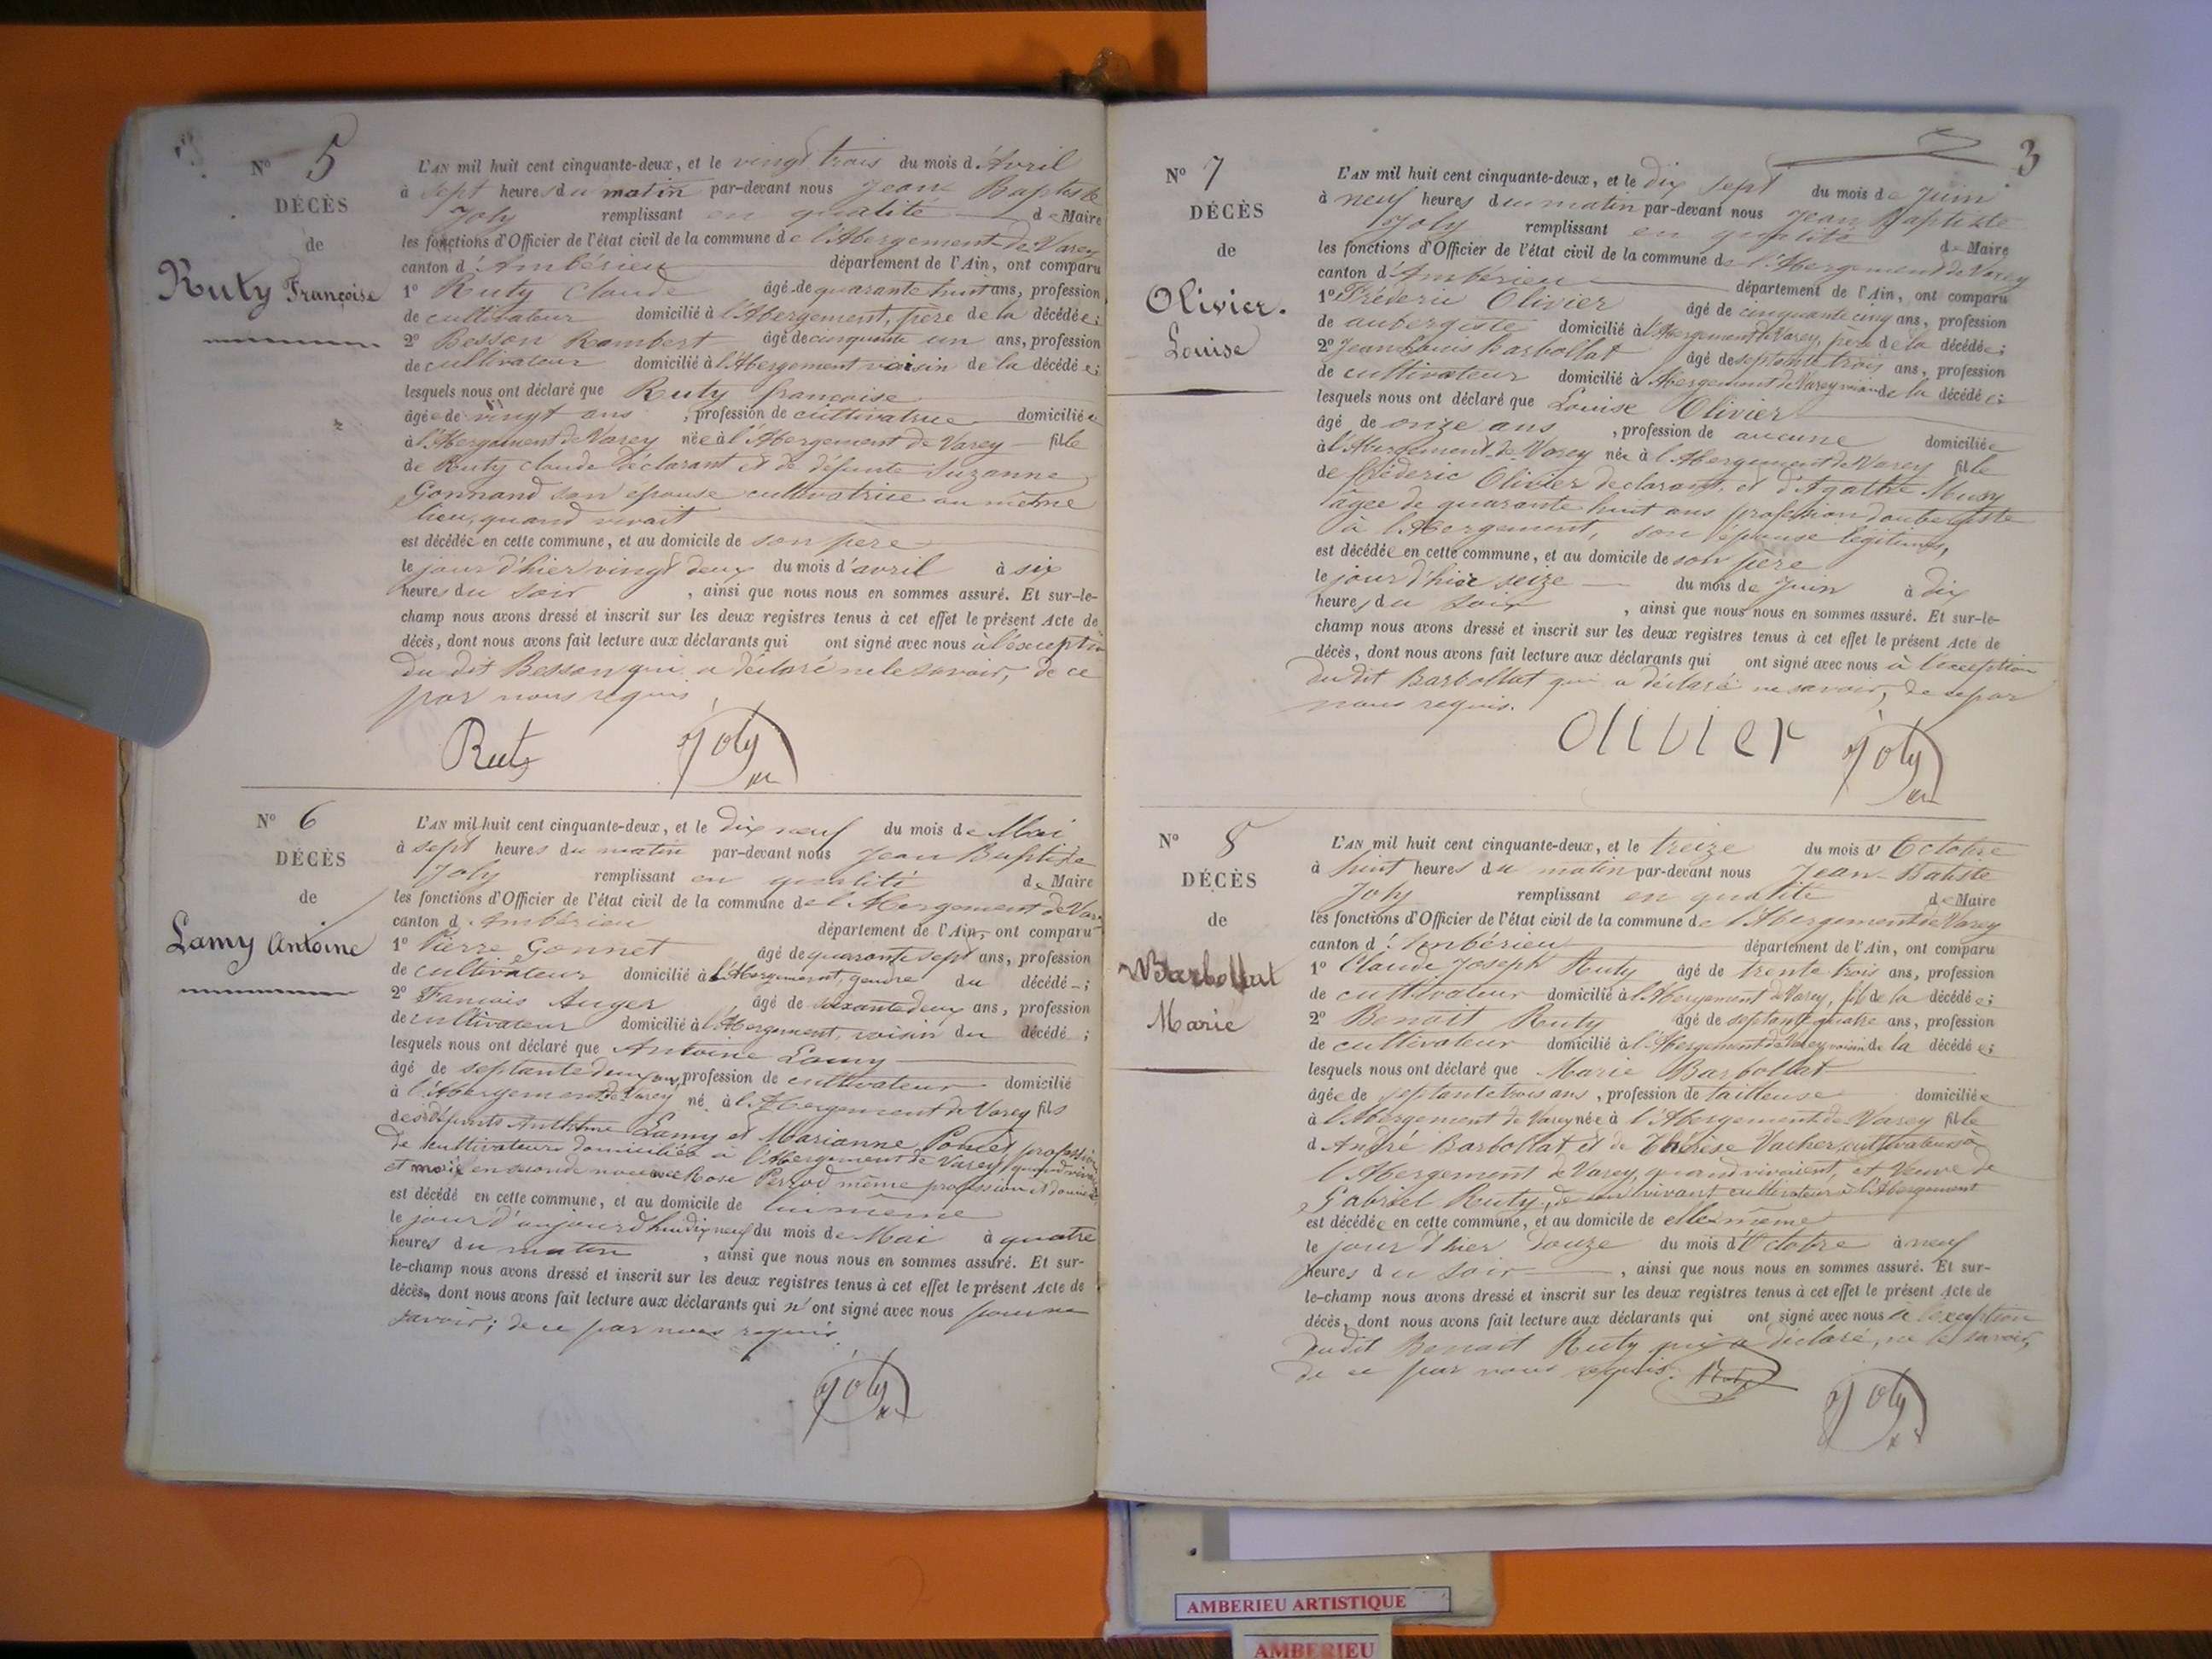 N° 5
DÉCÈS
de
Ruty Françoise
L'AN mil huit cent cinquante-deux, et le vingt trois du mois d'Avril
à sept heures du matin par-devant nous Jean Baptiste
Joly remplissant en qualité de Maire
les fonctions d'Officier de l'état civil de la commune de l'Abergement-de-Varey
canton d'Ambérieu département de l'Ain, ont comparu
1° Ruty Claude âgé de quarante huit ans, profession
de cultivateur domicilié à l'Abergement, père de la décédée;
2° Besson Rambert âgé de cinquante un ans, profession
de cultivateur domicilié à l'Abergement voisin de la décédée;
lesquels nous ont déclaré que Ruty françoise
âgée de vingt ans, profession de cultivatrice domiciliée
à l'Abergement de Varey née à l'Abergement de Varey fille
de Ruty claude déclarant et de défunte Suzanne
Gonnand son epouse cultivatrice au même
lieu, quand vivait
est décédée en cette commune, et au domicile de son père
le jour d'hier vingt deux du mois d'avril à six
heures du soir, ainsi que nous nous en sommes assuré. Et sur-le-
champ nous avons dressé et inscrit sur les deux registres tenus à cet effet le présent Acte de
décès, dont nous avons fait lecture aux déclarants qui ont signé avec nous à l'exception
du dit Besson qui a déclaré ne le savoir, de ce
par nous requis
Ruty Joly
N° 6
DÉCÈS
de
Lamy Antoine
L'AN mil huit cent cinquante-deux, et le dix neuf du mois de Mai
à sept heures du matin par-devant nous Jean Baptiste
Joly remplissant en qualité de Maire
les fonctions d'Officier de l'état civil de la commune de l'Abergement de Var
canton d'Ambérieu département de l'Ain, ont comparu
1° Pierre Gonnet âgé de quarante sept ans, profession
de cultivateur domicilié à l'Abergement, gendre du décédé;
2° Francois Auger âgé de soixante deux ans, profession
de cultivateur domicilié à l'Abergement, voisin du décédé;
lesquels nous ont déclaré que Antoine Lamy
âgé de septante deux ans, profession de cultivateur domicilié
à l'Abergement de Varey né à l'Abergement de Varey fils
des défunts Anthelme Lamy et Marianne Poncet profession
de cultivateurs domiciliés à l'Abergement de Varey, quand
et marié en seconde noce avec Rose Perrod même profession et
est décédé en cette commune, et au domicile de lui même
le jour d'aujourd'hui dix neuf du mois de Mai à quatre
heures du matin, ainsi que nous nous en sommes assuré. Et sur-
le-champ nous avons dressé et inscrit sur les deux registres tenus à cet effet le présent Acte de
décès, dont nous avons fait lecture aux déclarants qui n'ont signé avec nous pour ne
savoir; de ce par nous requis
Joly
3
N° 7
DÉCÈS
de
Olivier.
Louise
L'AN mil huit cent cinquante-deux, et le dix sept du mois de Juin
à neuf heures du matin par-devant nous Jean Baptiste
Joly remplissant en qualité de Maire
les fonctions d'Officier de l'état civil de la commune de l'Abergement de Varey
canton d'Ambérieu département de l'Ain, ont comparu
1° Fréderic Olivier âgé de cinquante cinq ans, profession
de aubergiste domicilié à l'Abergement de Varey, père de la décédée;
2° Jean Louis Barbollat âgé de septante trois ans, profession
de cultivateur domicilié à l'Abergement de Varey voisin de la décédée;
lesquels nous ont déclaré que Louise Olivier
âgé de onze ans, profession de aucune domiciliée
à l'Abergement de Varey née à l'Abergement de Varey fille
de fréderic Olivier déclarant, et d'Agathe Mussy
âgée de quarante huit ans profession d'aubergiste
à l'Abergement, son épouse légitime,
est décédée en cette commune, et au domicile de son père
le jour d'hier seize du mois de Juin à dix
heures du soir, ainsi que nous nous en sommes assuré. Et sur-le-
champ nous avons dressé et inscrit sur les deux registres tenus à cet effet le présent Acte de
décès, dont nous avons fait lecture aux déclarants qui ont signé avec nous à l'exception
du dit Barbollat qui a déclaré ne savoir, de ce par
nous requis.
Olivier Joly
N° 8
DÉCÈS
de
Barbollat
Marie
L'AN mil huit cent cinquante-deux, et le treize du mois d'Octobre
à huit heures du matin par-devant nous Jean-Batiste
Joly remplissant en qualité de Maire
les fonctions d'Officier de l'état civil de la commune de l'Abergement de Varey
canton d'Ambérieu département de l'Ain, ont comparu
1° Claude Joseph Ruty âgé de trente trois ans, profession
de cultivateur domicilié à l'Abergement de Varey, fils de la décédée;
2° Benoit Ruty âgé de septante quatre ans, profession
de cultivateur domicilié à l'Abergement de Varey voisin de la décédée;
lesquels nous ont déclaré que Marie Barbollat
âgée de septante trois ans, profession de tailleuse domiciliée
à l'Abergement de Varey née à l'Abergement de Varey fille
d'André Barbollat et de Thérèse Vacher, cultivateurs à
l'Abergement de Varey, quand vivaient, et Veuve de
Gabriel Ruty, de son vivant cultivateur à l'Abergement
est décédée en cette commune, et au domicile de elle même
le jour d'hier douze du mois d'Octobre à neuf
heures du soir, ainsi que nous nous en sommes assuré. Et sur-
le-champ nous avons dressé et inscrit sur les deux registres tenus à cet effet le présent Acte de
décès, dont nous avons fait lecture aux déclarants qui ont signé avec nous à l'exception
dudit Benoit Ruty qui a déclaré, ne le savoir,
de ce par nous requis. Ruty
Joly
AMBERIEU ARTISTIQUE
AMBERIEU